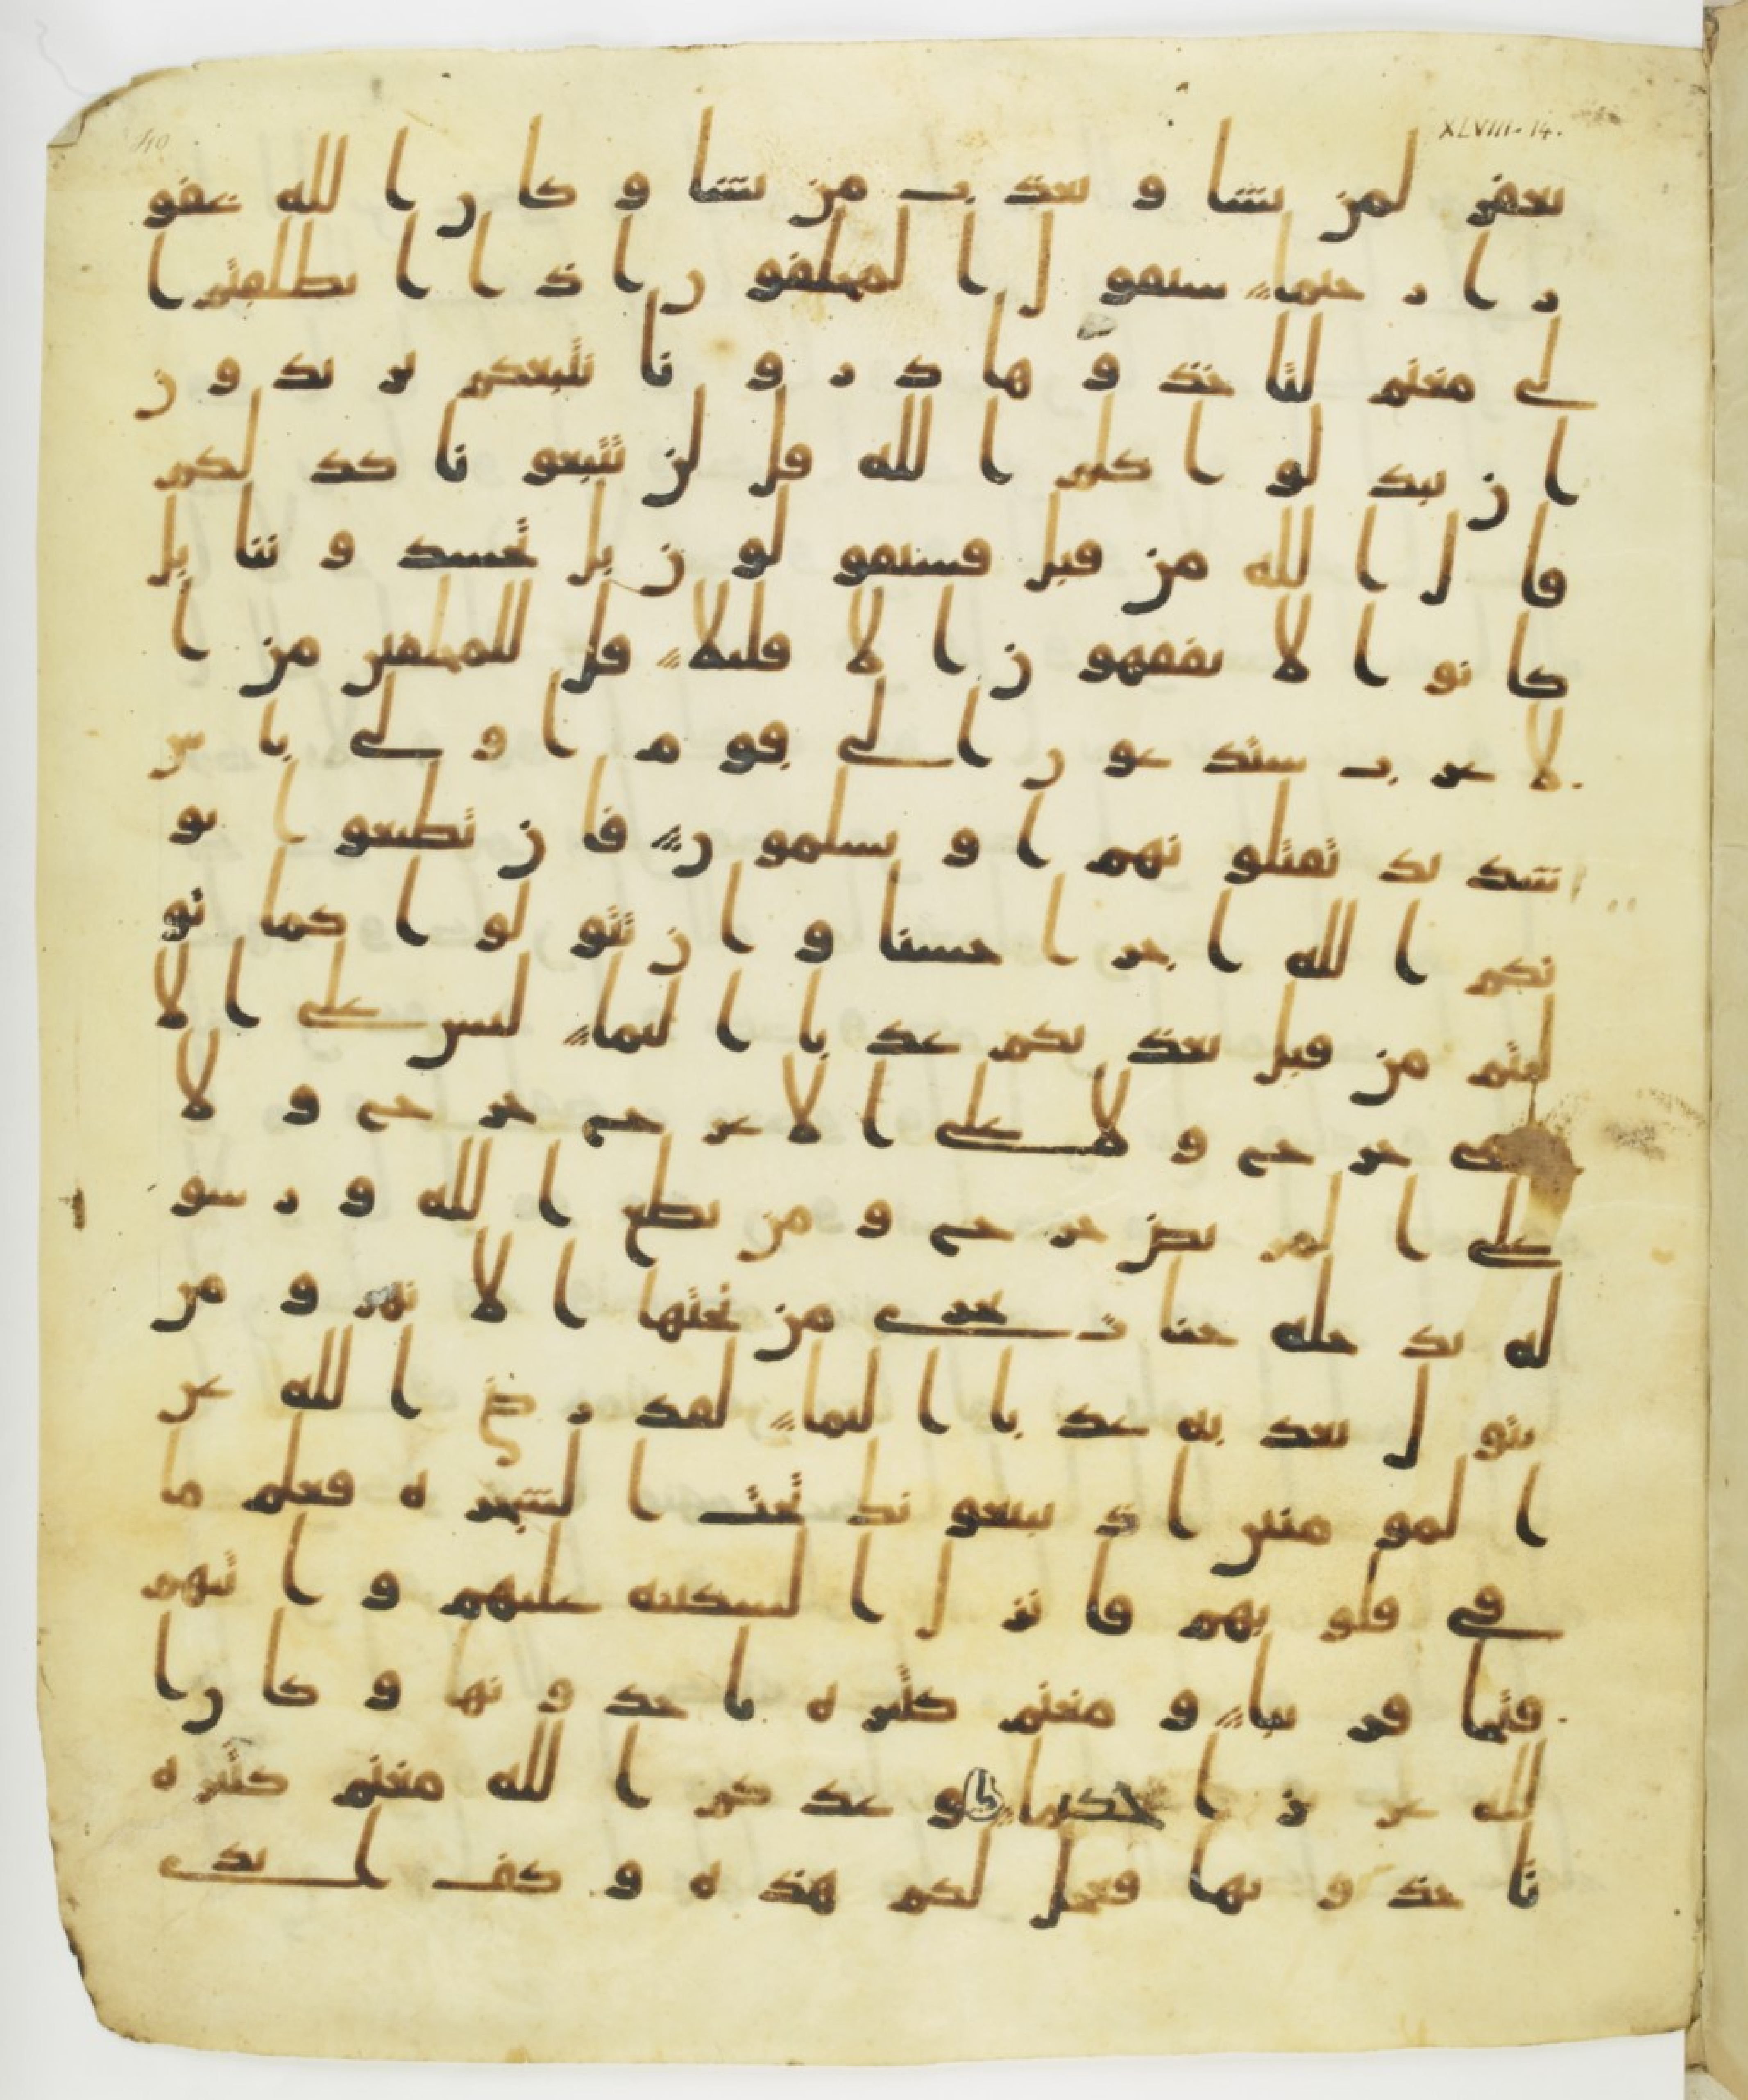 XLVIII-14.
يغفر لمن يشا و يعذ ب من يشا و كا ن ا لله غفو
ر ا ر حيما سيقو ل ا لمخلفو ن ا ذ ا ا نطلقتم ا
لى مغنم لتا خذ و ها ذ ر و نا نتبعكم ير يد و ن
ا ن يبد لو ا كلم ا لله قل لن تتبعو نا كذ لكم
قا ل ا لله من قبل فسيقو لو ن بل تحسد و ننا بل
كا نو ا لا يفقهو ن ا لا قليلا قل للمخلفين من ا
لا عر ب ستد عو ن ا لى قو م ا و لى با س
شد يد تقتلو نهم ا و يسلمو ن فا ن تطيعو ا يو
تكم ا لله ا جر ا حسنا و ا ن تتو لو ا كما تو
ليتم من قبل يعذ بكم عذ با ا ليما ليس على ا لا
عمى حر ج و لا على ا لا عر ج حر ج و لا
على ا لمر يض حر ج و من يطع ا لله و ر سو
له يد خله جنا ت تجر ى من تحتها ا لا نهر و من
يتو ل يعذ به عذ با ا ليما لقد ر ضى ا لله عن
ا لمو منين ا ذ يبيعو نك تحت ا لشجر ه فعلم ما
في قلو بهم فا نز ل ا لسكينه عليهم و ا ثبهم
فتحا قر يبا و مغنم كثير ه يا خذ و نها و كا ن ا
لله عز يز ا حكيما و عد كم ا لله مغنم كثير ه
تا خذ و نها فعجل لكم هذ ه و كف ا يد ى